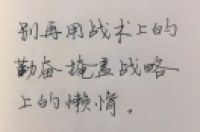 别再用战术上的
勤奋掩盖战略
上的懒惰。